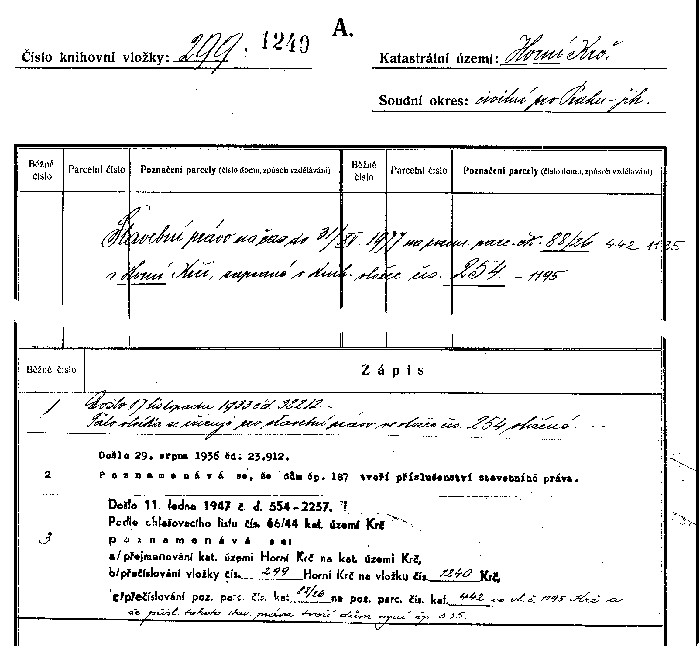 A.
Číslo knihovní vložky: 299. 1240
Katastrální území: Horní Krč.
Soudní okres: civilní pro Prahu-jih.
Běžné číslo Parcelní číslo Poznačení parcely (číslo domu, způsob vzdělávání) Běžné číslo Parcelní číslo Poznačení parcely (číslo domu, způsob vzdělávání)
Stavební právo na čas do 31/XII. 1977 na pozem. parc. čk. 88/26 442 1195
v Horní Krči, zapsané v knih. vložce čís. 254. - 1195
Běžné číslo Zápis
1 Došlo 17 listopadu 1933 čd 32212.-
Tato vložka se zřizuje pro stavební právo, ve vložce čís. 254,
Došlo 29. srpna 1936 čd: 23.912.
2 Poznamenává se, že dům čp. 187 tvoří příslušenství stavebního práva.
Došlo 11. ledna 1947 č. d. 554-2257.
Podle ohlašovacího listu čís. 66/44 kat. území Krč
3 poznamenává se:
a/přejmenování kat. území Horní Krč na kat. území Krč,
b/přečíslování vložky čís. 299 Horní Krč na vložku čís. 1240 Krč,
c/přečíslování poz. parc. čís. kat. 88/26 na poz. parc. čís. kat. 442 ve vl. č. 1195 Krč a
že přísl. tohoto stav. práva tvoří dům nyní čp.